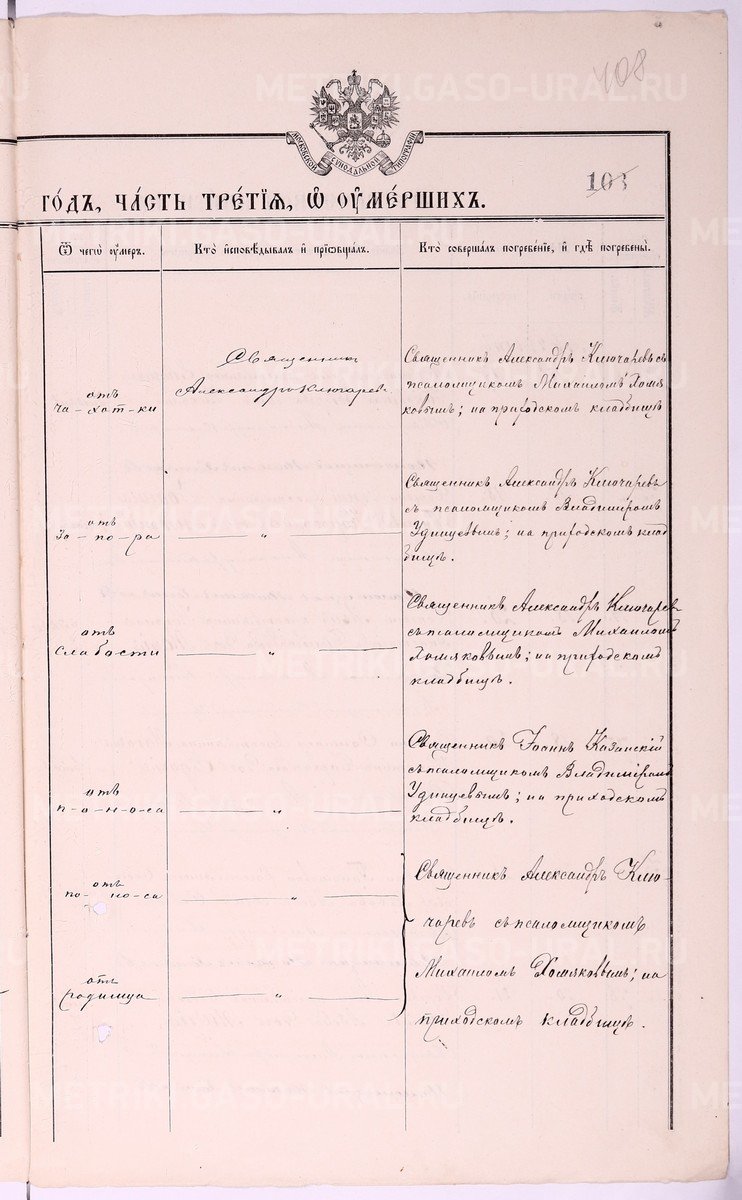 408
МОСКОВСКОЙ СѴНОДАЛЬНОЙ ТИПОГРАФІИ
103
ГО́ДЪ, ЧА́СТЬ ТРЕ́ТІѦ, Ѡ҆ ОУ҆МЕ́РШИХЪ.
Ѿ чегѡ̀ оу҆́меръ.
Кто̀ и҆сповѣ́дывалъ и҆ прїѡбща́лъ.
Кто̀ соверша́лъ погребе́нїе, и҆ гдѣ̀ погребены̀.
отъ
ча-хот-ки
Священникъ
Александръ Ключаревъ
Священникъ Александръ Ключаревъ съ
псаломщикомъ Михаиломъ Хомя
ковымъ; на приходскомъ кладбищѣ
отъ
за-по-ра
"
Священникъ Александръ Ключаревъ
съ псаломщикомъ Владиміромъ
Удинцевымъ; на приходскомъ клад
бищѣ.
отъ
слабости
"
Священникъ Александръ Ключаревъ
съ псаломщикомъ Михаиломъ
Хомяковымъ; на приходскомъ
кладбищѣ.
отъ
п-о-н-о-са
"
Священникъ Іоаннъ Казанскій
съ псаломщикомъ Владиміромъ
Удинцевымъ; на приходскомъ
кладбищѣ.
отъ
по-но-са
"
Священникъ Александръ Клю-
чаревъ съ псаломщикомъ
Михаиломъ Хомяковымъ; на
приходскомъ кладбищѣ.
отъ
родимца
"
METRIKI.GASO-URAL.RU